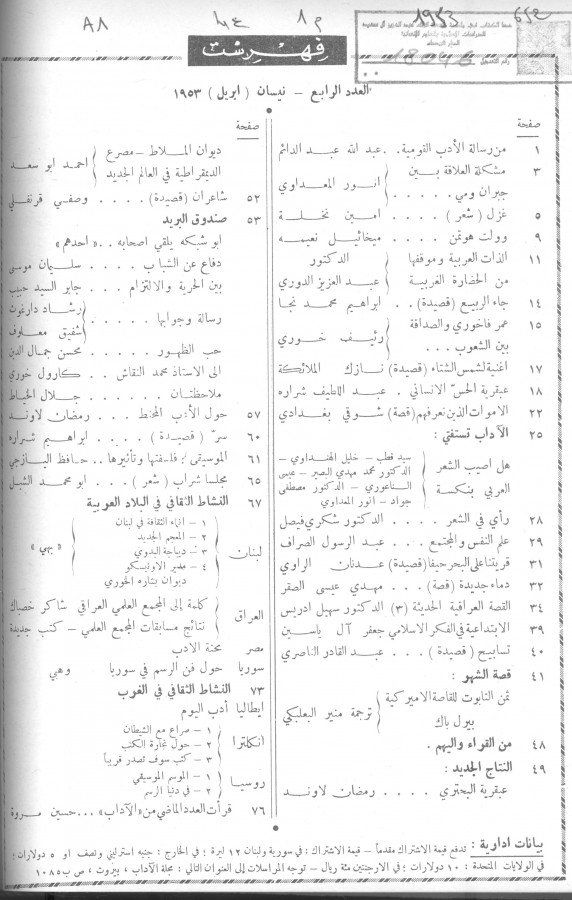 A8
م ٨
1953
652
18046
فهرست
العدد الرابع – نيسان ( ابريل ) ١٩٥٣
صفحة
١ من رسالة الأدب القومية . . عبد الله عبد الدائم
٣ مشكلة العلاقة بين جبران ومي . . . . { انور المعداوي
٥ غزل ( شعر ) . . . . امين نخلة
٩ وولت هوتمن . . . . ميخائيل نعيمه
١١ الذات العربية وموقفها من الحضارة الغربية { الدكتور عبد العزيز الدوري
١٤ جاء الربيع ( قصيدة ) . . ابراهيم محمد نجا
١٥ عمر فاخوري والصداقة بين الشعوب . . . . { رئيف خوري
١٧ اغنية لشمس الشتاء ( قصيدة ) نازك الملائكة
١٨ عبقرية الحس الانساني . عبد اللطيف شراره
٢٢ الاموات الذين نعرفهم ( قصة ) شوقي بغدادي
٢٥ الآداب تستفتي :
هل اصيب الشعر العربي بنكسة {
سيد قطب – خليل الهنداوي –
الدكتور محمد مهدي البصير – عيسى
الناعوري – الدكتور مصطفى
جواد – انور المعداوي
٢٨ رأي في الشعر . . . الدكتور شكري فيصل
٢٩ علم النفس والمجتمع . . عبد الرسول الصراف
٣١ قريتنا على البحر حيفا ( قصيدة ) عدنان الراوي
٣٢ دماء جديدة ( قصة ) . . مهدي عيسى الصقر
٣٤ القصة العراقية الحديثة (٣) الدكتور سهيل ادريس
٣٩ الابتداعية في الفكر الاسلامي جعفر آل ياسين
٤٠ تسابيح ( قصيدة ) . . . عبد القادر الناصري
٤١ قصة الشهر :
ثمن التابوت للقاصة الاميركية بيرل باك { ترجمة منير البعلبكي
٤٨ من القراء واليهم .
٤٩ النتاج الجديد :
عبقرية البحتري . . . . رمضان لاوند
صفحة
ديوان الملاط – مصرع الديمقراطية في العالم الجديد { احمد ابو سعد
٥٢ شاعران ( قصيدة ) . . . . وصفي قرنفلي
٥٣ صندوق البريد
ابو شبكه يلقي اصحابه . . « احدهم »
دفاع عن الشباب . . . . سليمان موسى
بين الحرية والالتزام . . . جابر السيد حبيب
رسالة وجوابها . . . . { رشاد دارغوث شفيق معلوف
حب الظهور . . . . . محسن جمال الدين
الى الاستاذ محمد النقاش . . كارول خوري
ملاحظتان . . . . . . جلال الخياط
٥٧ حول الأدب المحنط . . . رمضان لاوند
٦٠ سرّ ( قصيدة ) . . . . ابراهيم شراره
٦١ الموسيقى : فلسفتها وتأثيرها . . حافظ اليازجي
٦٥ مجلسا شراب ( شعر ) . . . ابو محمد الشبل
٦٧ النشاط الثقافي في البلاد العربية
لبنان {
١ – انماء الثقافة في لبنان
٢ – المعجم الجديد
٣ – ديباجة البدوي
٤ – مصير الاونيسكو
ديوان بشاره الخوري
} « يجي »
العراق {
كلمة إلى المجمع العلمي العراقي شاكر خصباك
نتائج مسابقات المجمع العلمي – كتب جديدة
مصر محنة الادب
سوريا حول فن الرسم في سوريا وهبي
٧٣ النشاط الثقافي في الغرب
ايطاليا أدب اليوم
انكلترا {
١ – صراع مع الشيطان
٢ – حول تجارة الكتب
٣ – كتب سوف تصدر قريباً
روسيا {
١ – الموسم الموسيقي
٢ – في دنيا الرسم
٧٦ قرأت العدد الماضي من « الآداب » . . . حسين مروة
بيانات ادارية : تدفع قيمة الاشتراك مقدماً – قيمة الاشتراك : في سورية ولبنان ١٢ ليرة ؛ في الخارج : جنيه استرليني ونصف او ٥ دولارات ؛
في الولايات المتحدة : ١٠ دولارات ؛ في الارجنتين مئة ريال – توجه المراسلات إلى العنوان التالي : مجلة الآداب ، بيروت ، ص ب ١٠٨٥